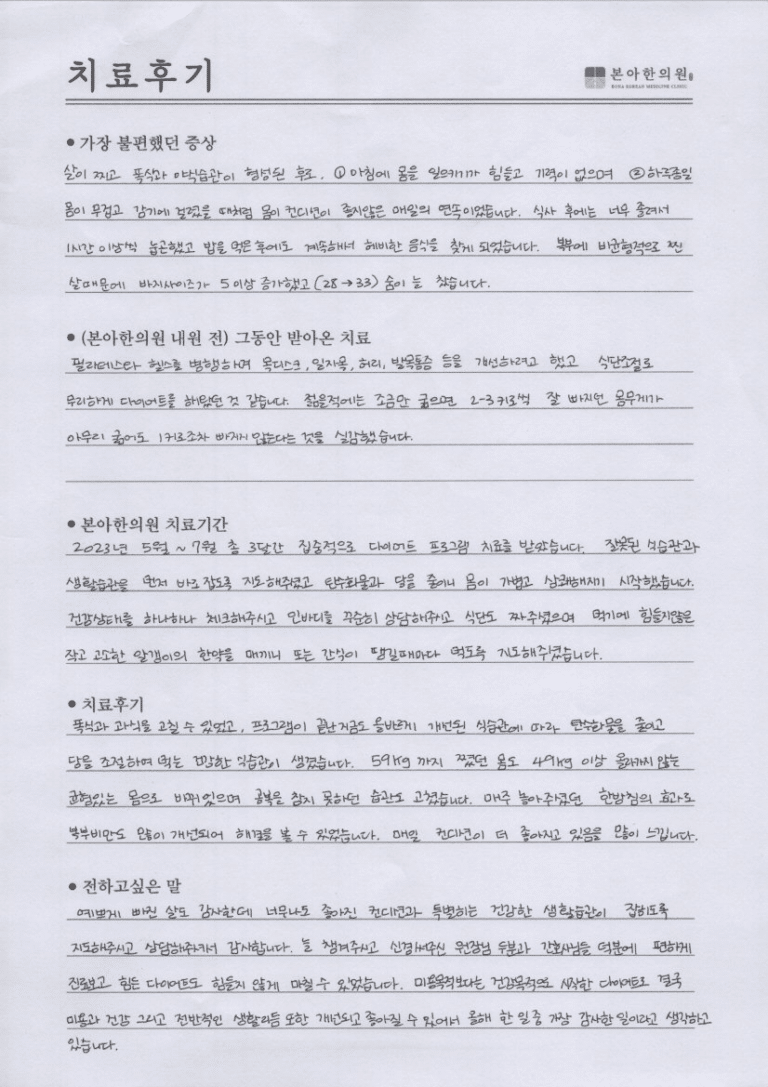 치료후기
본아한의원
BONA KOREAN MEDICINE CLINIC
• 가장 불편했던 증상
살이 찌고 폭식과 야식습관이 형성된 후로, ① 아침에 몸을 일으키기가 힘들고 기력이 없으며 ② 하루종일
몸이 무겁고 감기에 걸렸을 때처럼 몸이 컨디션이 좋지않은 매일의 연속이었습니다. 식사 후에는 너무 졸려서
1시간 이상씩 눕곤했고 밥을 먹은후에도 계속해서 헤비한 음식을 찾게 되었습니다. 복부에 비균형적으로 찐
살때문에 바지사이즈가 5이상 증가했고 (28→33) 숨이 늘 찼습니다.
• (본아한의원 내원 전) 그동안 받아온 치료
필라테스와 헬스를 병행하며 목디스크, 일자목, 허리, 발목통증 등을 개선하려고 했고 식단조절로
무리하게 다이어트를 해왔던 것 같습니다. 젊을적에는 조금만 굶으면 2-3키로씩 잘 빠지던 몸무게가
아무리 굶어도 1키로조차 빠지지 않는다는 것을 실감했습니다.
• 본아한의원 치료기간
2023년 5월 ~ 7월 총 3달간 집중적으로 다이어트 프로그램 치료를 받았습니다. 잘못된 식습관과
생활습관을 먼저 바로잡도록 지도해주셨고 탄수화물과 당을 줄이니 몸이 가볍고 상쾌해지기 시작했습니다.
건강상태를 하나하나 체크해주시고 인바디를 꾸준히 상담해주시고 식단도 짜주셨으며 먹기에 힘들지않은
작고 고소한 알갱이의 한약을 매끼니 또는 간식이 땡길때마다 먹도록 지도해주셨습니다.
• 치료후기
폭식과 과식을 고칠 수 있었고, 프로그램이 끝난 지금도 올바르게 개선된 식습관에 따라 탄수화물을 줄이고
당을 조절하며 먹는 건강한 식습관이 생겼습니다. 59kg 까지 쪘던 몸도 49kg 이상 올라가지 않는
균형있는 몸으로 바뀌었으며 공복을 참지 못하던 습관도 고쳤습니다. 매주 놓아주셨던 한방침의 효과로
복부비만도 많이 개선되어 해결을 볼 수 있었습니다. 매일 컨디션이 더 좋아지고 있음을 많이 느낍니다.
• 전하고싶은 말
예쁘게 빠진 살도 감사한데 너무나도 좋아진 컨디션과 특별히는 건강한 생활습관이 잡히도록
지도해주시고 상담해주셔서 감사합니다. 늘 챙겨주시고 신경써주신 원장님 두분과 간호사님들 덕분에 편하게
진료보고 힘든 다이어트도 힘들지 않게 마칠 수 있었습니다. 미용목적보다는 건강목적으로 시작한 다이어트로 결국
미용과 건강 그리고 전반적인 생활리듬 또한 개선되고 좋아질 수 있어서 올해 한 일중 가장 감사한 일이라고 생각하고
있습니다.